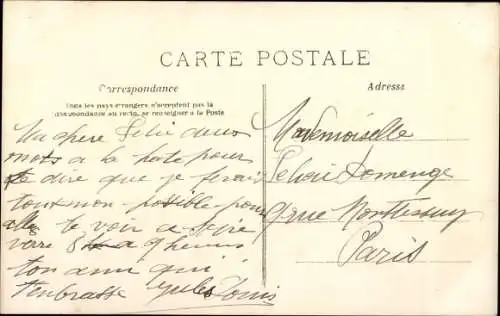 CARTE POSTALE
Correspondance
Tous les pays étrangers n'acceptent pas la
correspondance au recto, se renseigner à la Poste
Adresse
Ma chère Félie deux
mots a la hate pour
te dire que je ferai
tout mon possible pour
aller te voir a soire
vere 8 a 9 heures
ton ami qui
t'enbrasse Jules
Mademoiselle
Felicie Domenge
9 rue Monttessuy
Paris